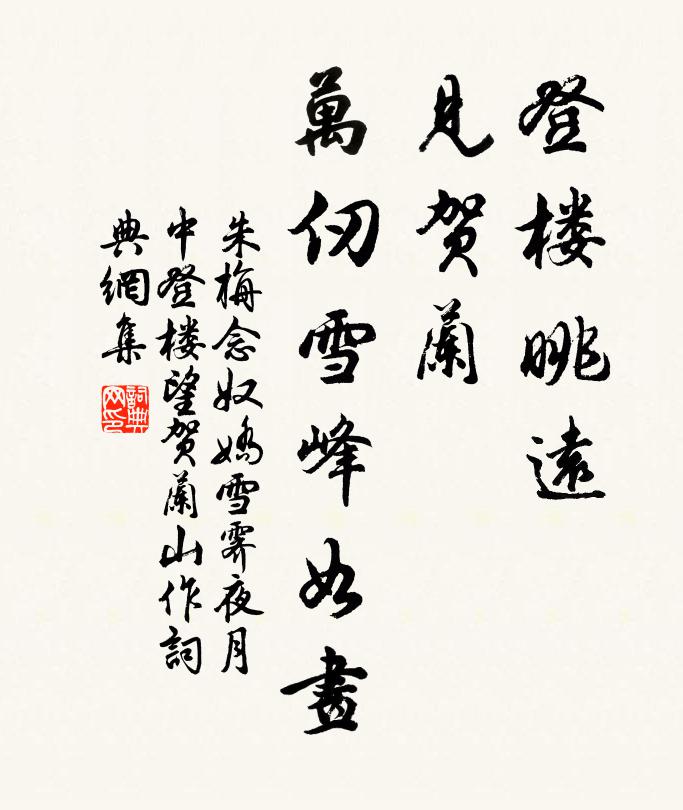 登楼眺遠
見贺蘭
萬仞雪峰如畫
朱梅念奴嬌雪霽夜月
中登楼望贺蘭山作詞
典網集
詞典网印